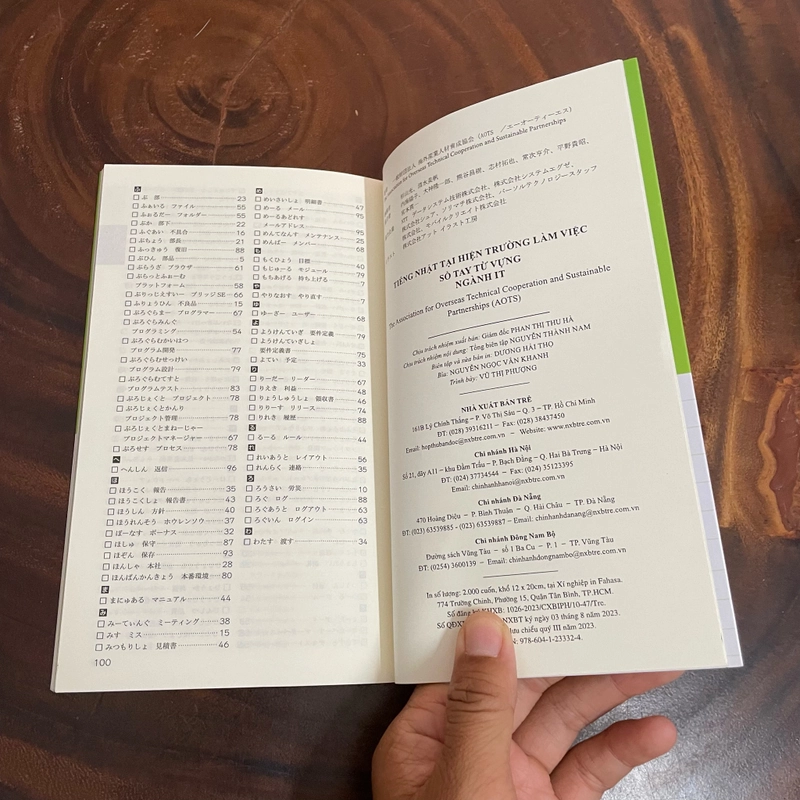 ふ
□ ぶ 部 23
□ ふぁいる ファイル 55
□ ふぉるだー フォルダー 55
□ ぶか 部下 22
□ ふぐあい 不具合 16
□ ぶちょう 部長 21
□ ふっきゅう 復旧 88
□ ぶひん 部品 5
□ ぶらうざ ブラウザ 61
□ ぷらっとふぉーむ
プラットフォーム 58
□ ぶりっじえすいー ブリッジSE 66
□ ふりょうひん 不良品 15
□ ぷろぐらまー プログラマー 67
□ ぷろぐらみんぐ
プログラミング 54
□ ぷろぐらむかいはつ
プログラム開発 77
□ ぷろぐらむせっけい
プログラム設計 79
□ ぷろぐらむてすと
プログラムテスト 83
□ ぷろじぇくと プロジェクト 78
□ ぷろじぇくとかんり
プロジェクト管理 78
□ ぷろじぇくとまねーじゃー
プロジェクトマネージャー 67
□ ぷろせす プロセス 78
へ
□ へんしん 返信 96
ほ
□ ほうこく 報告 35
□ ほうこくしょ 報告書 43
□ ほうしん 方針 40
□ ほうれんそう ホウレンソウ 37
□ ぼーなす ボーナス 32
□ ほしゅ 保守 87
□ ほぞん 保存 93
□ ほんしゃ 本社 28
□ ほんばんかんきょう 本番環境 80
ま
□ まにゅある マニュアル 44
み
□ みーてぃんぐ ミーティング 38
□ みす ミス 15
□ みつもりしょ 見積書 46
100
め
□ めいさいしょ 明細書 47
□ めーる メール 95
□ めーるあどれす
メールアドレス 95
□ めんてなんす メンテナンス 25
□ めんばー メンバー 68
も
□ もくひょう 目標 40
□ もじゅーる モジュール
□ もちあげる 持ち上げる
や
□ やりなおす やり直す 7
ゆ
□ ゆーざー ユーザー 68
よ
□ ようけんていぎ 要件定義
□ ようけんていぎしょ
要件定義書 75
□ よてい 予定 33
り
□ りーだー リーダー 67
□ りえき 利益 48
□ りょうしゅうしょ 領収書 46
□ りりーす リリース 74
□ りれき 履歴 88
る
□ るーる ルール 44
れ
□ れいあうと レイアウト 56
□ れんらく 連絡 35
ろ
□ ろうさい 労災 10
□ ろぐ ログ 88
□ ろぐあうと ログアウト 63
□ ろぐいん ログイン 63
わ
□ わたす 渡す 34
海外産業人材育成協会 (AOTS / エーオーティーエス)
Association for Overseas Technical Cooperation and Sustainable Partnerships
TIẾNG NHẬT TẠI HIỆN TRƯỜNG LÀM VIỆC
SỔ TAY TỪ VỰNG
NGÀNH IT
The Association for Overseas Technical Cooperation and Sustainable
Partnerships (AOTS)
Chịu trách nhiệm xuất bản: Giám đốc PHAN THỊ THU HÀ
Chịu trách nhiệm nội dung: Tổng biên tập NGUYỄN THÀNH NAM
Biên tập và sửa bản in: DƯƠNG HẢI THỌ
Bìa: NGUYỄN NGỌC VÂN KHANH
Trình bày: VŨ THỊ PHƯỢNG
NHÀ XUẤT BẢN TRẺ
161B Lý Chính Thắng – P. Võ Thị Sáu – Q. 3 – TP. Hồ Chí Minh
ĐT: (028) 39316211 – Fax: (028) 38437450
Email: hopthubandoc@nxbtre.com.vn – Website: www.nxbtre.com.vn
Chi nhánh Hà Nội
Số 21, dãy A11 – khu Đầm Trấu – P. Bạch Đằng – Q. Hai Bà Trưng – Hà Nội
ĐT: (024) 37734544 – Fax: (024) 35123395
Email: chinhanhhanoi@nxbtre.com.vn
Chi nhánh Đà Nẵng
470 Hoàng Diệu – P. Bình Thuận – Q. Hải Châu – TP. Đà Nẵng
ĐT: (023) 63539885 - (023) 63539887 – Email: chinhanhdanang@nxbtre.com.vn
Chi nhánh Đông Nam Bộ
Đường sách Vũng Tàu – số 1 Ba Cu – P. 1 – TP. Vũng Tàu
ĐT: (0254) 3600139 – Email: chinhanhdongnambo@nxbtre.com.vn
In số lượng: 2.000 cuốn, khổ 12 x 20cm, tại Xí nghiệp in Fahasa.
774 Trường Chinh, Phường 15, Quận Tân Bình, TP.HCM.
Số đăng ký KHXB: 1026-2023/CXBIPH/10-47/Tre.
Số QĐX NXBT ký ngày 03 tháng 8 năm 2023.
lưu chiểu quý III năm 2023.
978-604-1-23332-4.